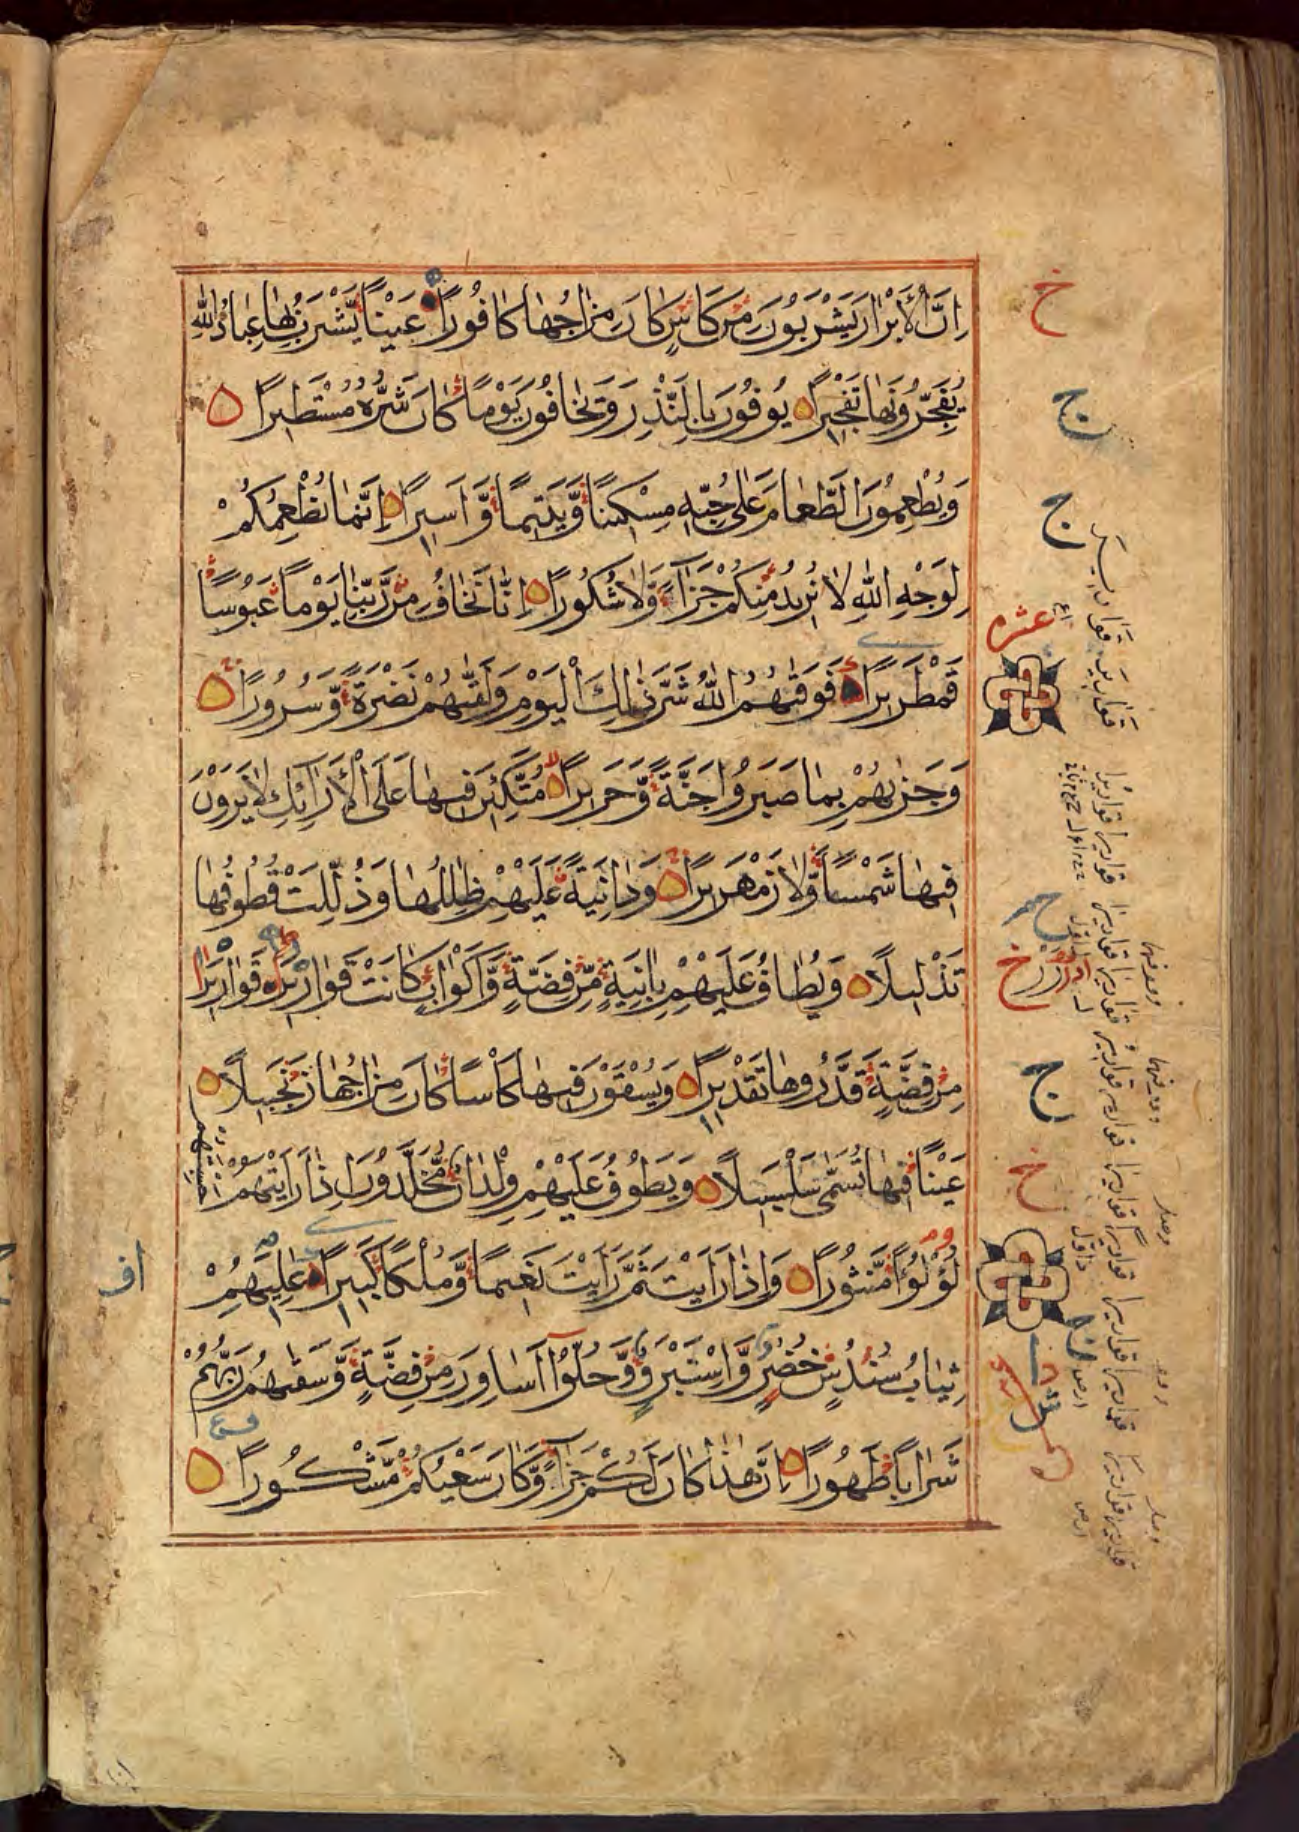 اِنَّ الْاَبْرَارَ يَشْرَبُونَ مِنْ كَاْسٍ كَانَ مِزَاجُهَا كَافُورًا عَيْنًا يَّشْرَبُ بِهَا عِبَادُ اللّٰهِ
يُفَجِّرُونَهَا تَفْجِيرًا يُوفُونَ بِالنَّذْرِ وَيَخَافُونَ يَوْمًا كَانَ شَرُّهُ مُسْتَطِيرًا
وَيُطْعِمُونَ الطَّعَامَ عَلٰى حُبِّهٖ مِسْكِينًا وَّيَتِيمًا وَّاَسِيرًا اِنَّمَا نُطْعِمُكُمْ
لِوَجْهِ اللّٰهِ لَا نُرِيدُ مِنْكُمْ جَزَآءً وَّلَا شُكُورًا اِنَّا نَخَافُ مِنْ رَّبِّنَا يَوْمًا عَبُوسًا
قَمْطَرِيرًا فَوَقٰىهُمُ اللّٰهُ شَرَّ ذٰلِكَ الْيَوْمِ وَلَقّٰىهُمْ نَضْرَةً وَّسُرُورًا
وَجَزٰىهُمْ بِمَا صَبَرُوا جَنَّةً وَّحَرِيرًا مُتَّكِئِينَ فِيهَا عَلَى الْاَرَآئِكِ لَا يَرَوْنَ
فِيهَا شَمْسًا وَّلَا زَمْهَرِيرًا وَدَانِيَةً عَلَيْهِمْ ظِلٰلُهَا وَذُلِّلَتْ قُطُوفُهَا
تَذْلِيلًا وَيُطَافُ عَلَيْهِمْ بِاٰنِيَةٍ مِّنْ فِضَّةٍ وَّاَكْوَابٍ كَانَتْ قَوَارِيرَا قَوَارِيرَا
مِنْ فِضَّةٍ قَدَّرُوهَا تَقْدِيرًا وَيُسْقَوْنَ فِيهَا كَاْسًا كَانَ مِزَاجُهَا زَنْجَبِيلًا
عَيْنًا فِيهَا تُسَمّٰى سَلْسَبِيلًا وَيَطُوفُ عَلَيْهِمْ وِلْدَانٌ مُّخَلَّدُونَ اِذَا رَاَيْتَهُمْ حَسِبْتَهُمْ
لُؤْلُؤًا مَّنْثُورًا وَاِذَا رَاَيْتَ ثَمَّ رَاَيْتَ نَعِيمًا وَّمُلْكًا كَبِيرًا عٰلِيَهُمْ
ثِيَابُ سُنْدُسٍ خُضْرٌ وَّاِسْتَبْرَقٌ وَّحُلُّوا اَسَاوِرَ مِنْ فِضَّةٍ وَّسَقٰىهُمْ رَبُّهُمْ
شَرَابًا طَهُورًا اِنَّ هٰذَا كَانَ لَكُمْ جَزَآءً وَّكَانَ سَعْيُكُمْ مَّشْكُورًا
خ
ج
ج
عشره
ج
خ